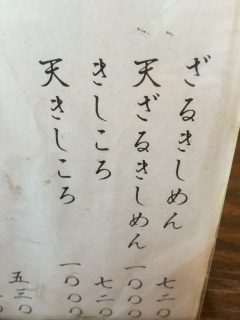 ざるきしめん 七二〇
天ざるきしめん 一〇〇〇
きしころ 七二〇
天きしころ 一〇〇〇
五三〇